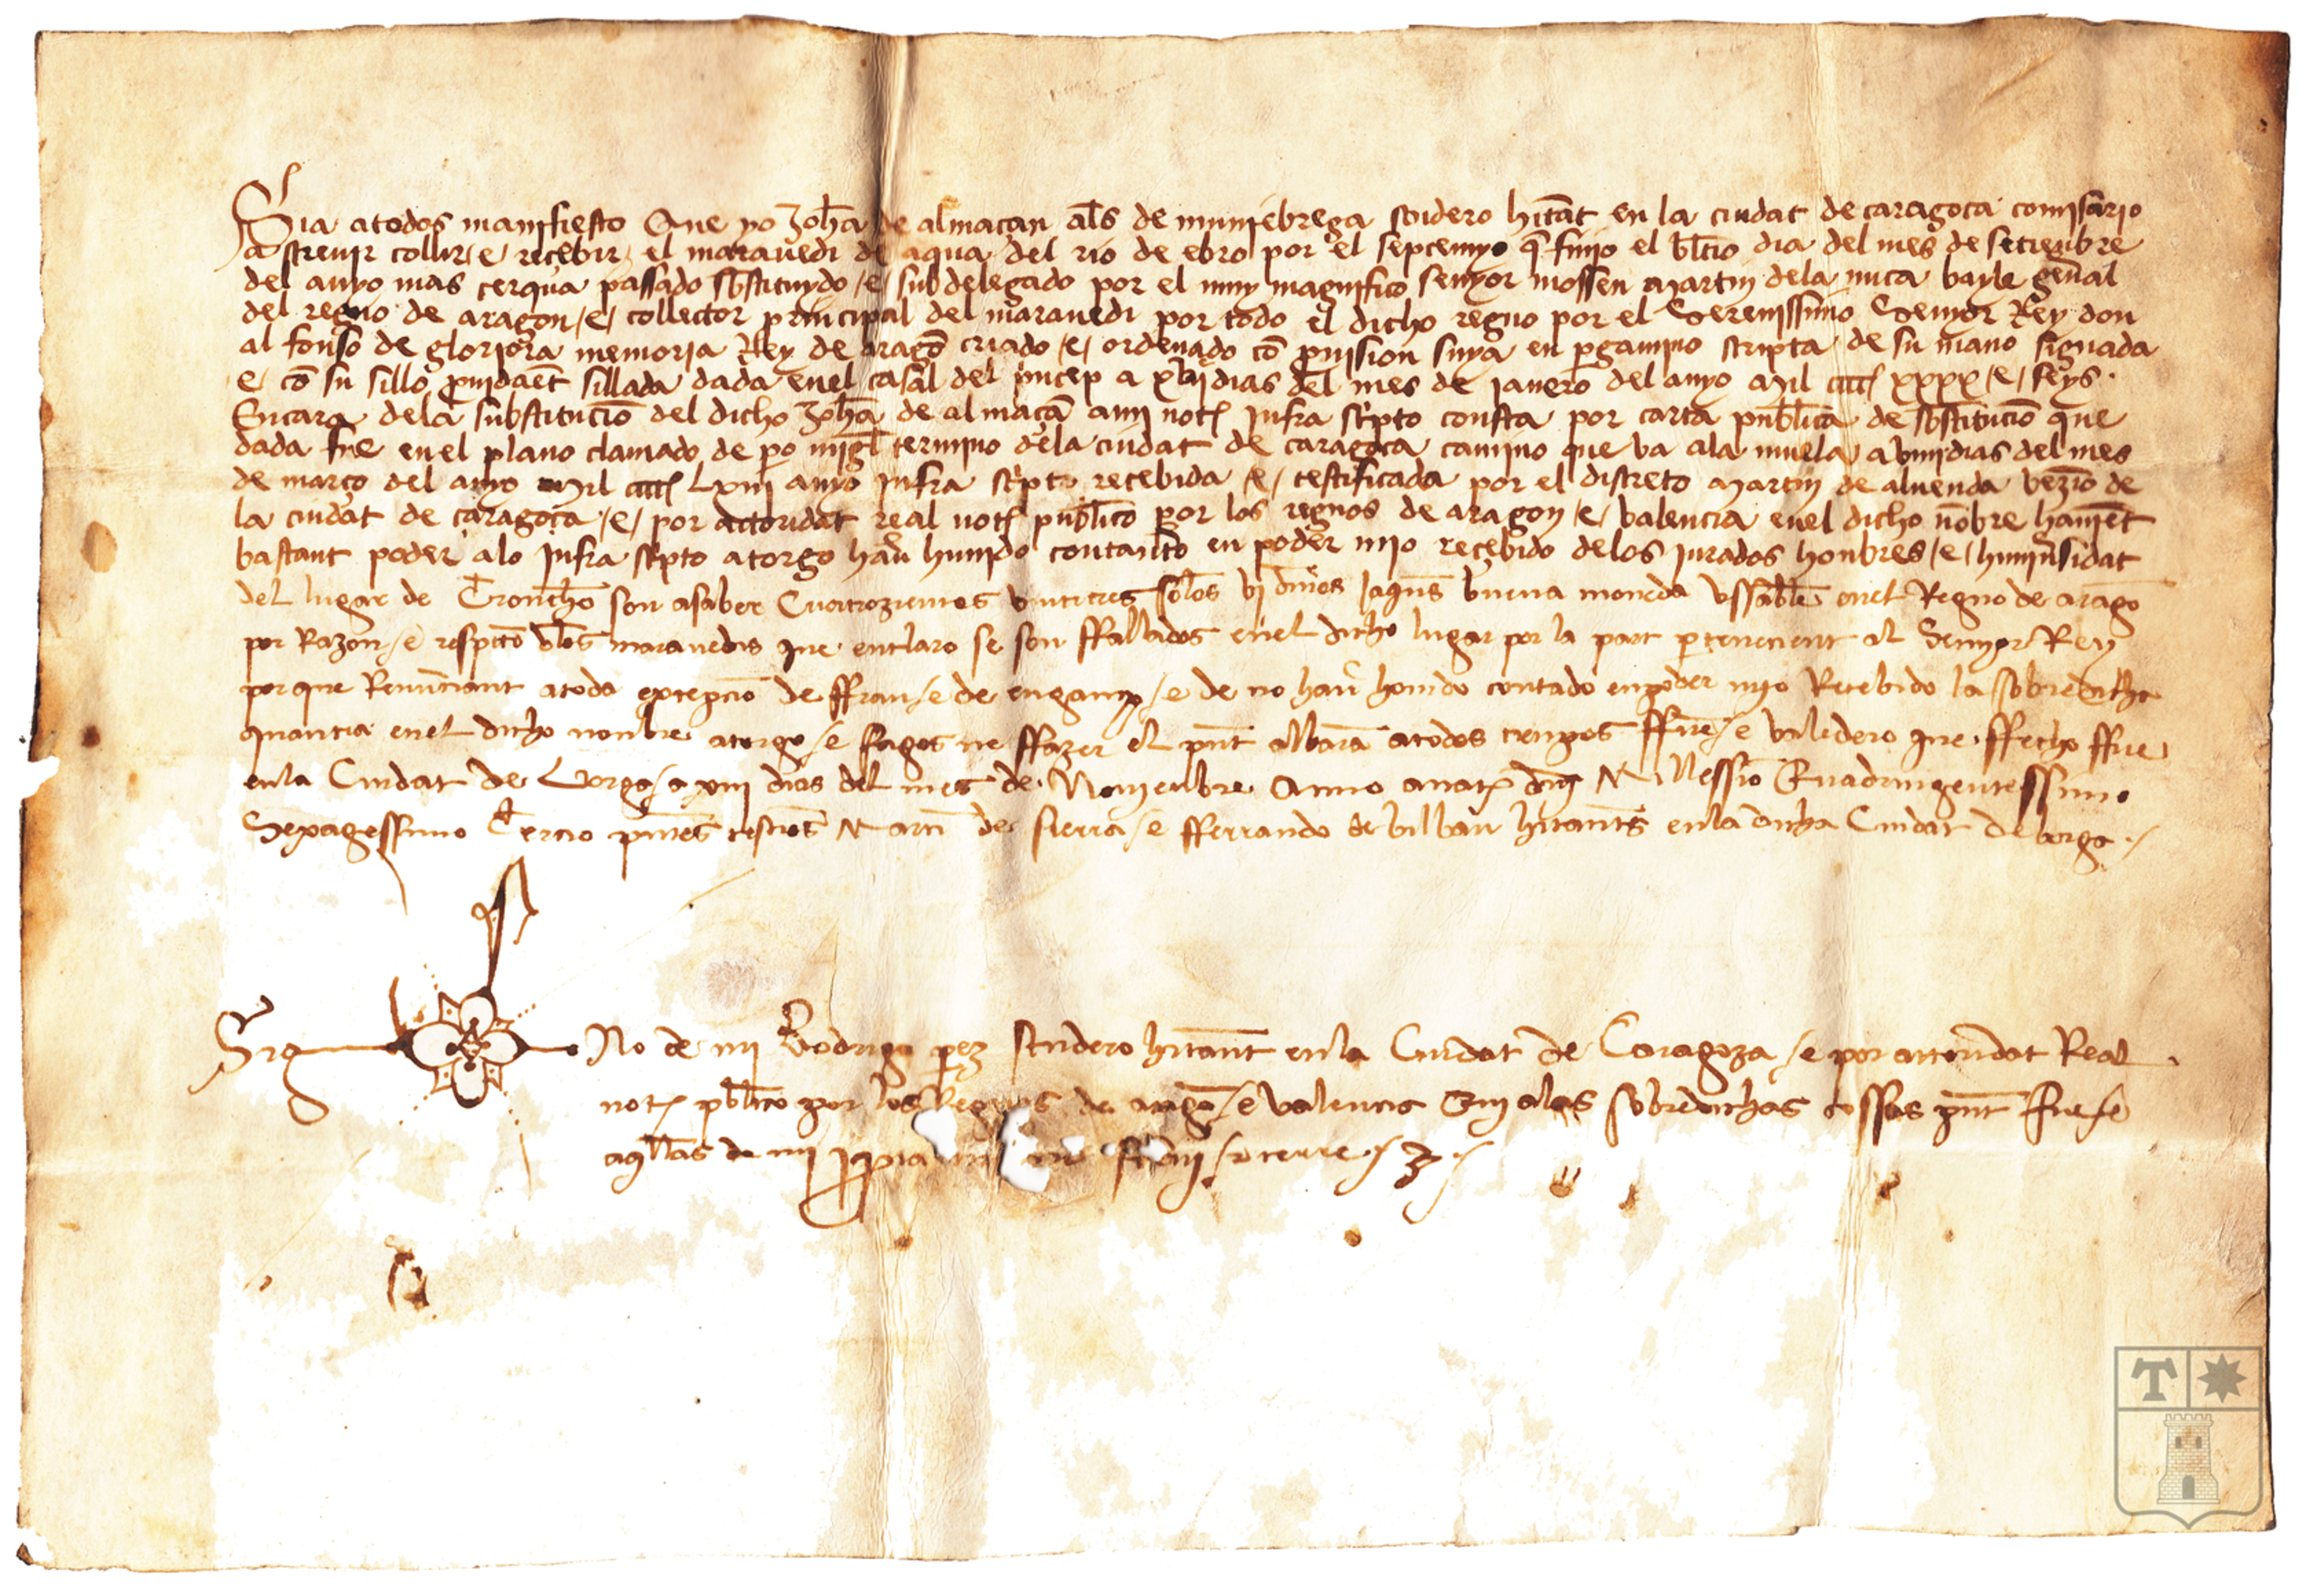 Sia atodos manifiesto Que yo Johā de almaçan als de muniebrega scudero hītāt en la ciudat de caragoça comisario
a streuir collir /e/ recebir el marauedi de aqua del rio de ebro por el septenyo q̄ finjo el çagero dia del mes de setienbre
del anyo mas cerqua passado sbstituydo /e/ subdelegado por el muy magnifico senyor mossen martin dela nuça bayle gen̄al
del regno de aragon /e/ collector principal del marauedi por todo el dicho regno por el Serenissimo Senyor Rey don
alfonso de gloriosa memoria Rey de aragō criado /e/ ordenado cō prouision suya en pergamino scripta de su mano signada
e cō su sillo sillada dada en el casal del princep a dias del mes de janero del anyo Mil cccc xxxx /e/ seys.
En cara dela substituciō del dicho Johā de almaçā a mi not infra scpto consta por carta publica de sbstituciō que
dada fue en el plano clamado de po migl termino dela ciudat de caragoça camino que va ala muela a viiij dias del mes
de março del anyo Mil cccc Lxiij anyo infra scpto recebida /e/ testificada por el discreto martin de aluenda vezino de
la ciudat de caragoça /e/ por actoridat real not publico por los regnos de aragon /e/ valencia en el dicho nōbre hauiēt
bastant poder alo infra scpto atorgo hau huuido contanto en poder mio recebido delos jurados honbres /e/ huniusidat
del lugar de Tronchō son asaber Cuatrozientos vintitres sols vj dines jaqns buena moneda vssable en el Regno de aragō
por Razon /e respecto dlos marauedis que entlaro se son ffallados en el dicho lugar por la part pertenecient al Senyor Rey
porque Renunciant atoda excepcio de ffrau /e de enganyo /e de no hau houido contado en poder mio Recebido la sobredicha
quantia en el dicho nonbre atorgo /e fagos ne ffazer el pnt albarā atodos tienpos ffirme /e valedero que ffecho ffue
en la Ciudat de Borga /a xiij dias del mes de Nouienbre Anno anat dnj Millessio Quadringentessimo
Sexagessimo Tercio pntes testios Marti de sierra /e fferrando de bilbau hitants en la dicha Ciudat de borga ./
Sig No de mi Rodrigo perez scudero hitant en la Ciudat de Caragoza /e por actoridat Real
not pblico por los Regnos de aragō /e valencia Qui alas sobredichas cossas pnt fue /e
aqllas de mi ppia screui /e cerre ./
T